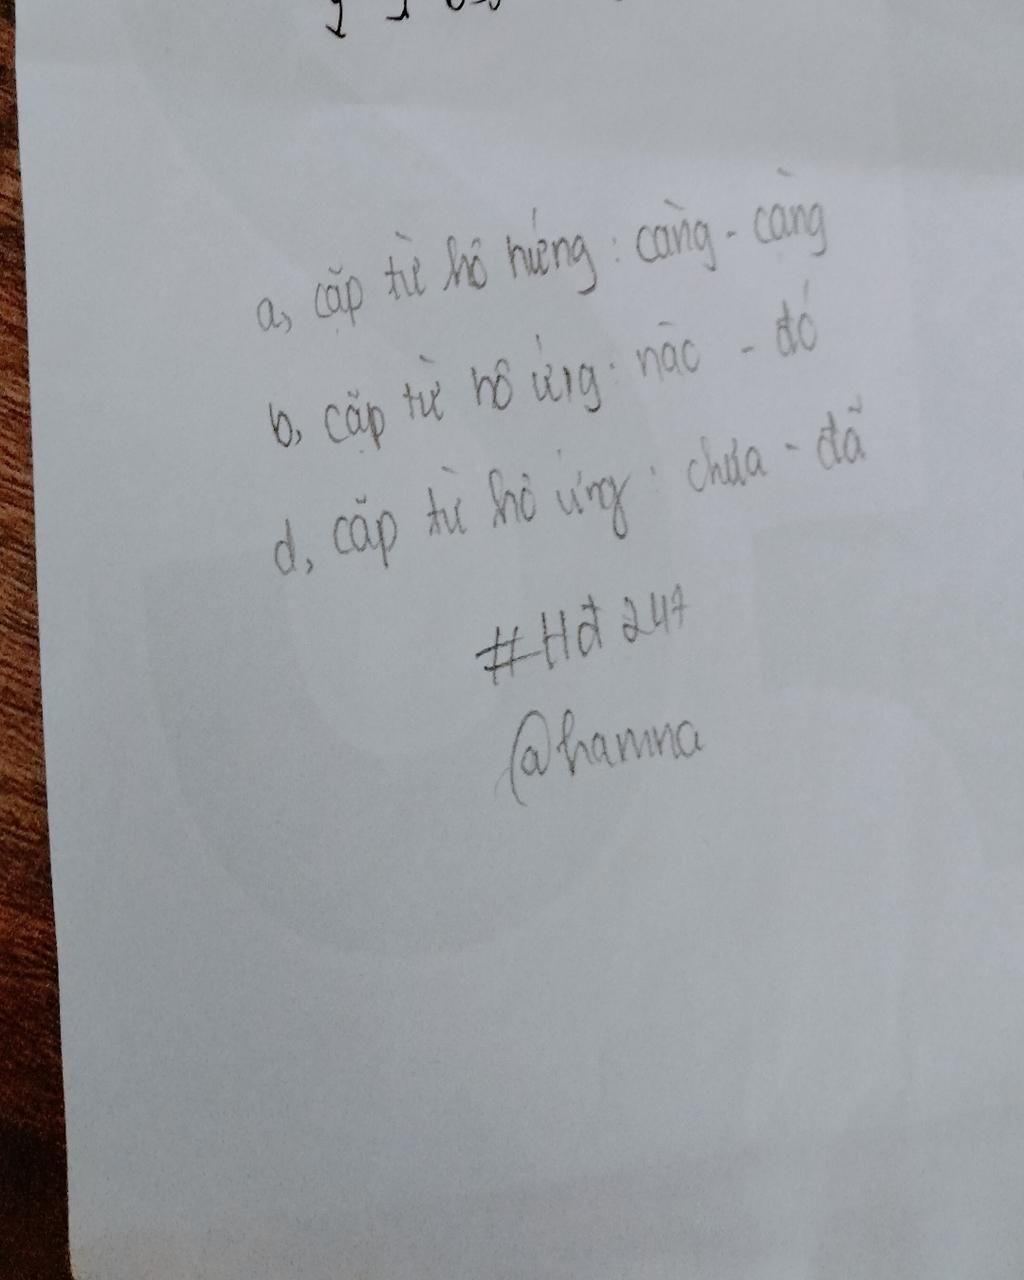 a, cặp từ hô hứng : càng - càng
b, cặp từ hô ứng : nào - đó
d, cặp từ hô ứng : chưa - đã
#Hđ 247
@hanna